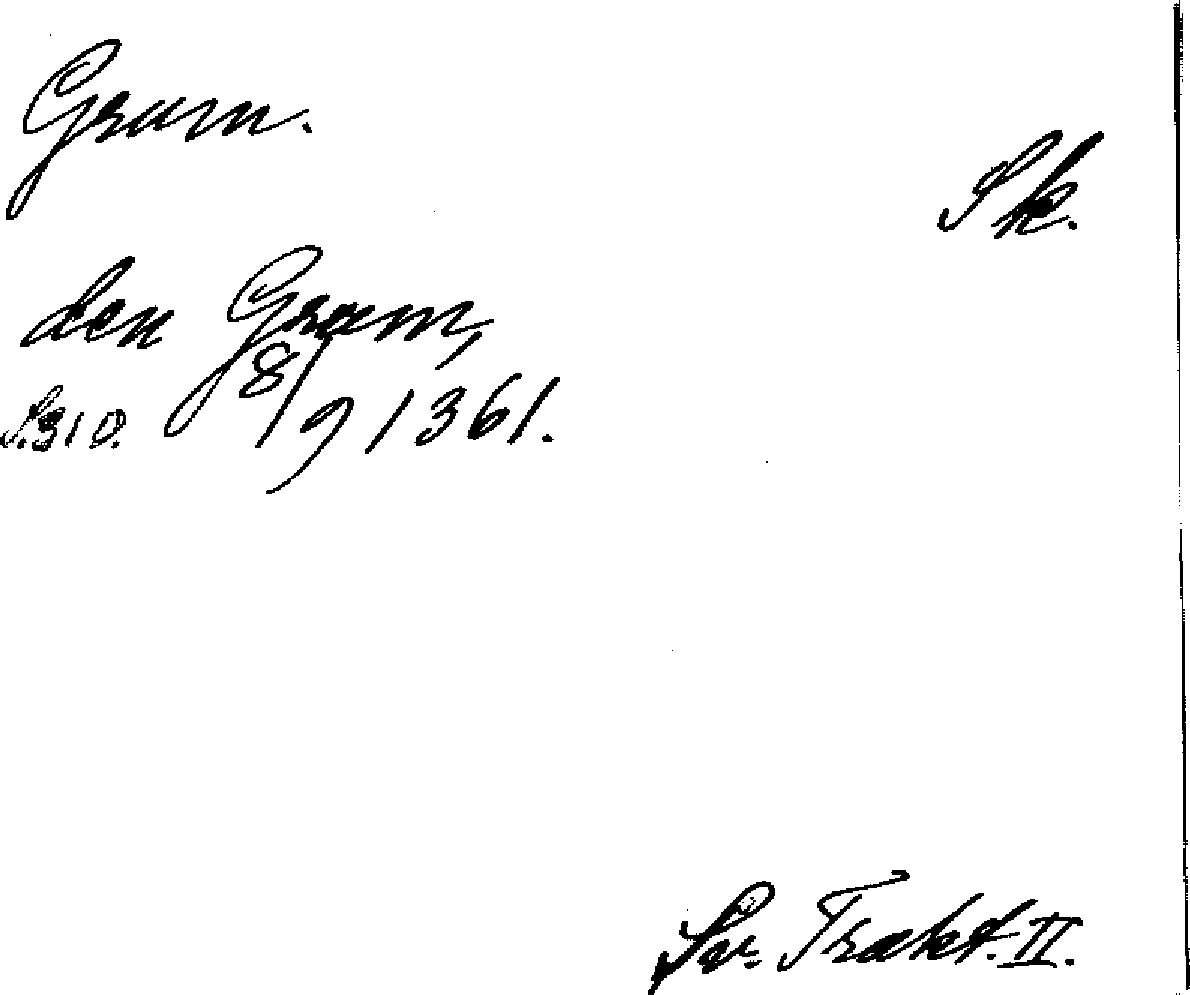 Gram.
Sk.
den Gram,
S.310. 8/9 1361.
Sv. Trakt. II.